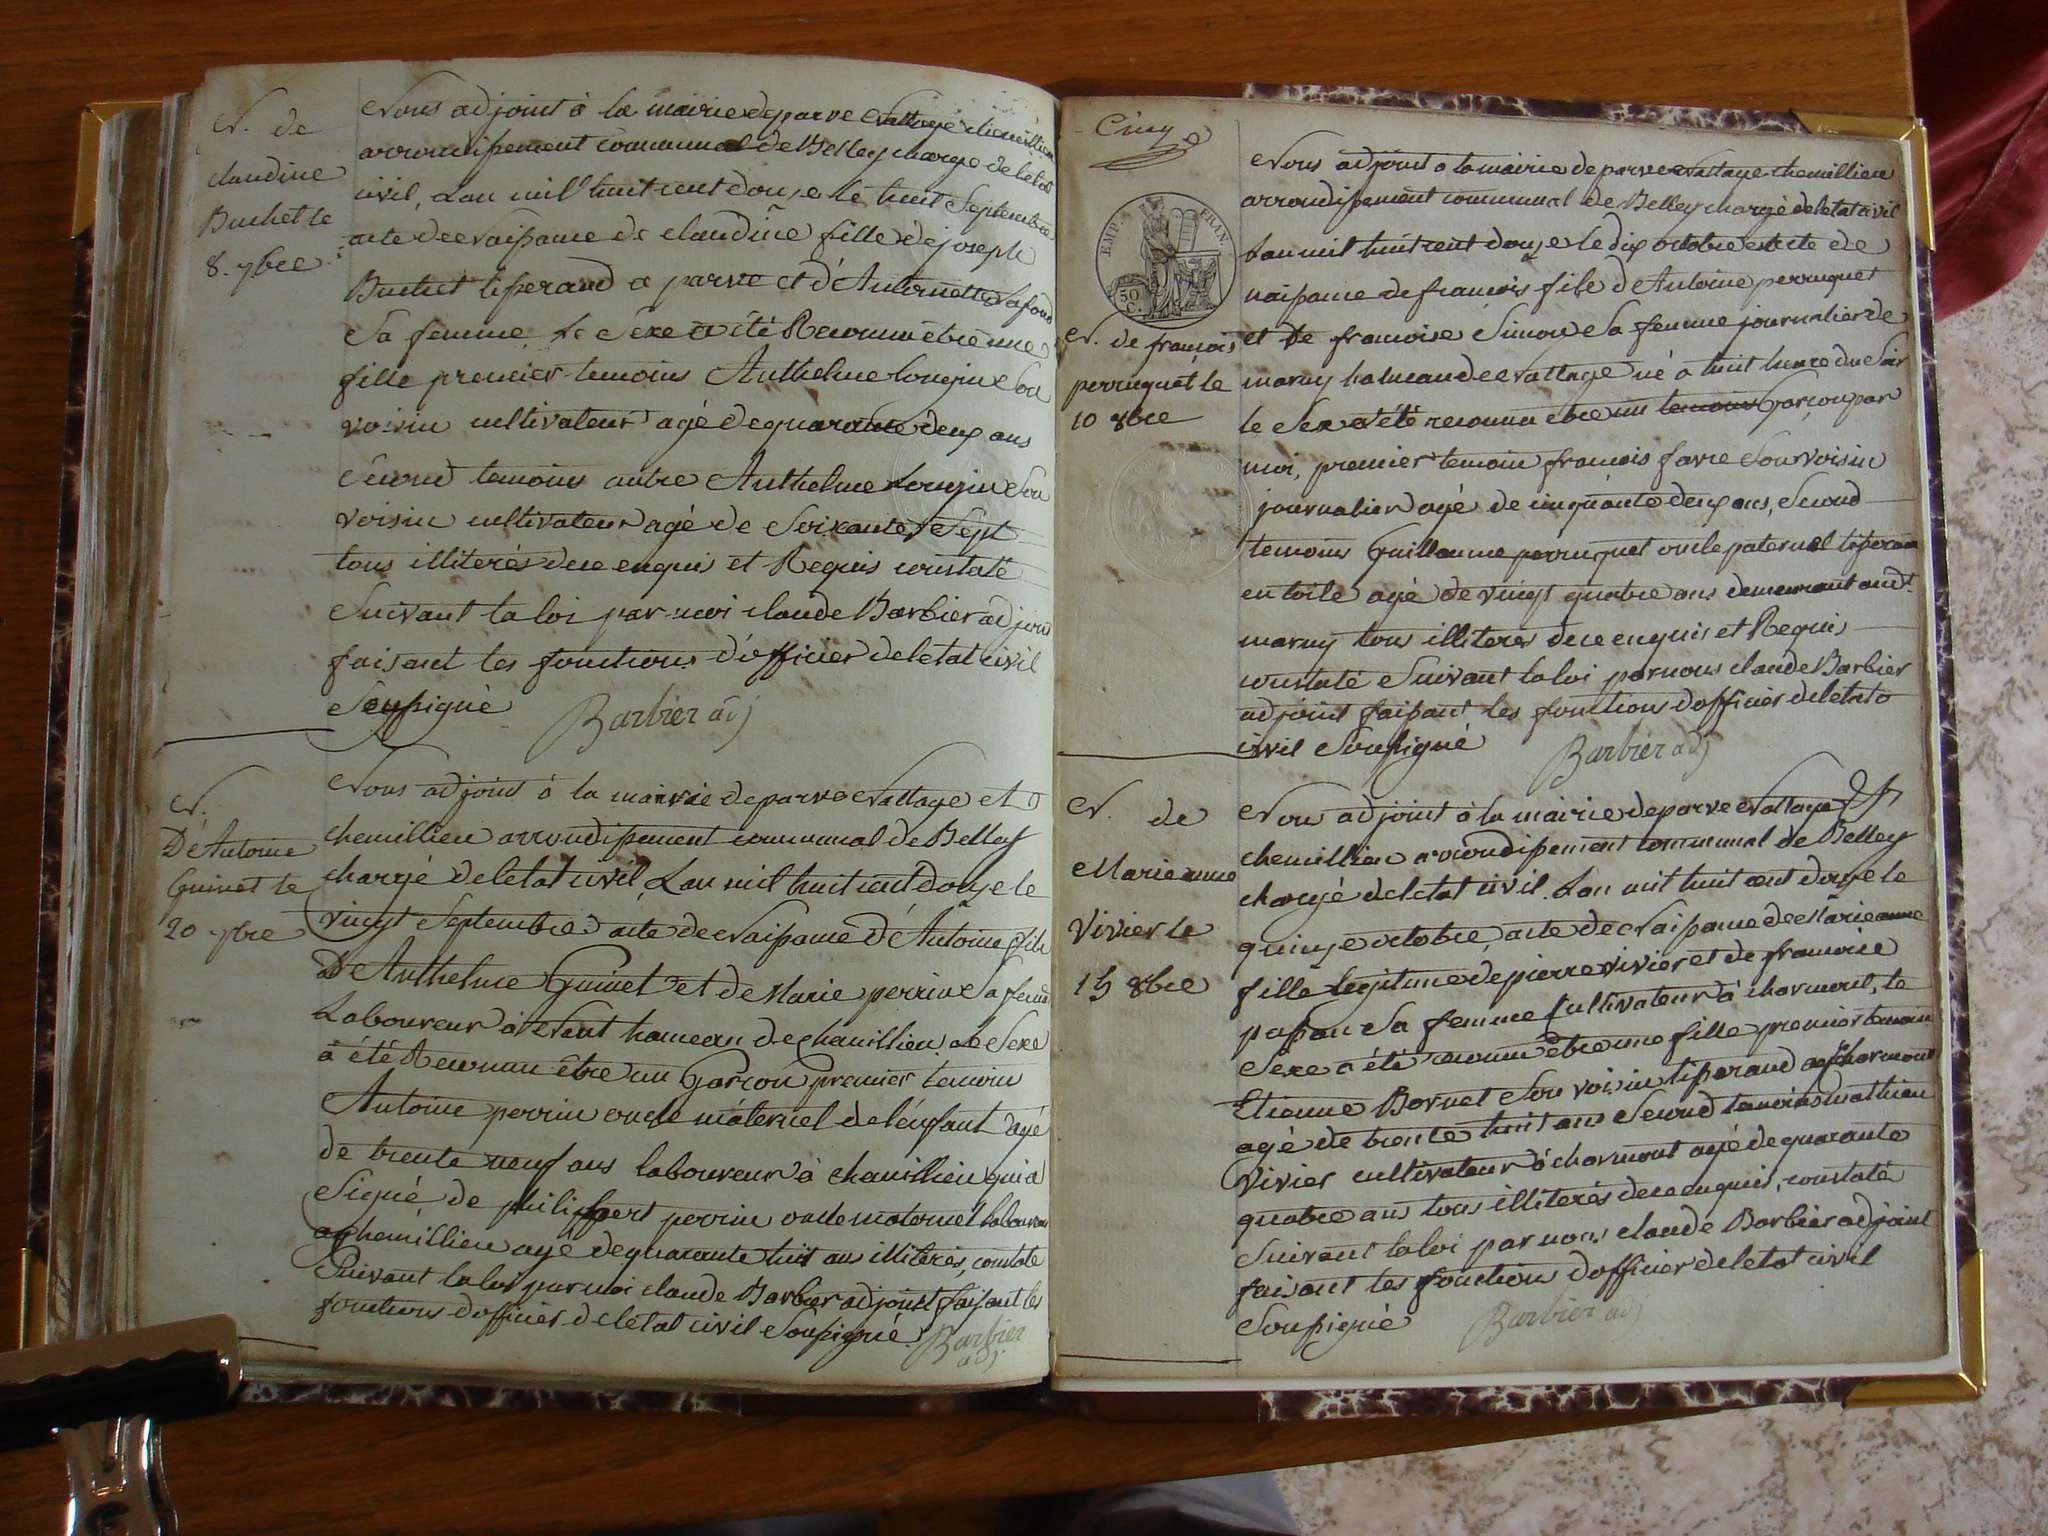 N. de
claudine
Buchet le
8. 7bre
Nous adjoint à la mairie de parve Nattage chemillieu
arrondissement communal de Belley chargé de letat
civil, Lan mil huit cent douze le huit Septembre
acte de Naissance de claudine fille de joseph
Buchet tisserand a parve et d'Antoinette Lafond
Sa femme, Le Sexe a été Reconnu etre une
fille premier temoins Anthelme Longin Son
voisin cultivateur agé de quarante deux ans
Second temoins autre Anthelme Longin Son
voisin cultivateur agé de Soixante Sept
tous illiterés de ce enquis et Requis constaté
Suivant la loi par moi claude Barbier adjoint
faisant les fonctions d'officier de letat civil
Soussigné Barbier adj
N.
D'Antoine
Guinet le
20 7bre
Nous adjoint à la mairie de parve Nattage et
chemillieu arrondissement communal de Belley
chargé de letat civil, Lan mil huit cent douze le
vingt Septembre acte de Naissance d'Antoine fils
D'Anthelme Guinet et de Marie perrin Sa femme
Laboureur à hameau de chemillieu Le Sexe
a été Reconnu être un Garçon premier temoin
Antoine perrin oncle maternel de lenfant agé
de trente neuf ans laboureur à chemillieu qui a
Signé de philibert perrin oncle maternel laboureur
a chemillieu agé de quarante huit ans illiterés, constaté
Suivant la loi par moi claude Barbier adjoint faisant les
fonctions dofficier de letat civil Soussigné Barbier
adj.
Cinq
EMP. FRAN.
50 C.
N. de françois
perruquet le
10 8bre
Nous adjoint a la mairie de parve Nattage chemillieu
arrondissement communal de Belley chargé de letat civil
Lan mil huit cent douze le dix octobre acte de
naissance de françois fils d'Antoine perruquet
et De francoise Simon Sa femme journalier de
marny hameau de Nattage né à huit heure du Soir
le Sexe a été reconnu etre un temoins Garçon par
moi, premier temoin francois favre Son voisin
journalier agé de cinquante deux ans, Second
temoins Guillaume perruquet oncle paternel tisserand
en toile agé de vingt quatre ans demeurant audt.
marny tous illiterés de ce enquis et Requis
constaté Suivant la loi par nous claude Barbier
adjoint faisant les fonctions dofficier de letat
civil Soussigné Barbier adj
N. de
Marie anne
Vivier le
15 8bre
Nous adjoint à la mairie de parve Nattage et
chemillieu arrondissement communal de Belley
chargé de letat civil. Lan mil huit cent douze le
quinze octobre, acte de Naissance de Marie anne
fille legitime de pierre vivier et de francoise
passon Sa femme Cultivateur à charmont, le
Sexe a été reconnu etre une fille premier temoin
Etienne Bornet Son voisin tisserand a charmont
agé de trente huit ans Second temoins mathieu
Vivier cultivateur à charmont agé de quarante
quatre ans tous illiterés de ce enquis, constaté
Suivant la loi par nous claude Barbier adjoint
faisant les fonctions dofficier de letat civil
Soussigné Barbier adj